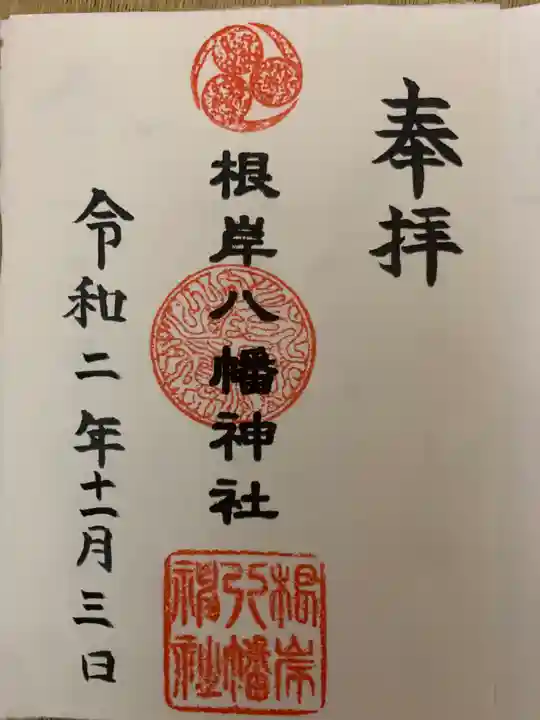 奉拝
根岸八幡神社
令和二年十一月三日
根岸
八幡
神社